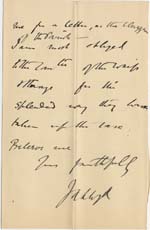 me for a letter, as the Clergyman
of the Parish —
I am most obliged
to the Com^tee of the Waifs
& Strays for the
splendid way they have
taken up the case.
Believe me
Yours faithfully